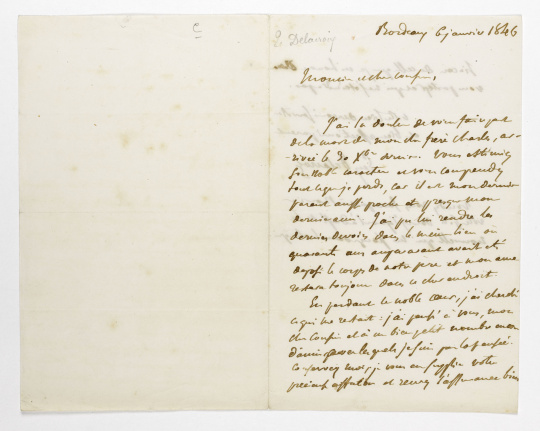 C
E. Delacroix
Bordeaux 6 janvier 1846
Monsieur et cher cousin,
J'ai la douleur de vous faire part
de la mort de mon cher frère Charles, ar-
-rivée le 30 Xbre dernier. Vous estimiez
son noble caractère et vous comprendrez
tout ce que je perds, car il est mon dernier
parent aussi proche et presque mon
dernier ami. J'ai pu lui rendre les
derniers devoirs dans le même lieu où
quarante ans auparavant avait été
déposé le corps de notre père et mon âme
restera toujours dans ce cher endroit.
En perdant ce noble cœur, j'ai cherché
ce qui me restait : j'ai pensé à vous, mon
cher cousin et à un bien petit nombre
d'amis lesquels je suis par la pensée.
Conservez moi, je vous en supplie votre
précieuse affection et recevez l'assurance bien